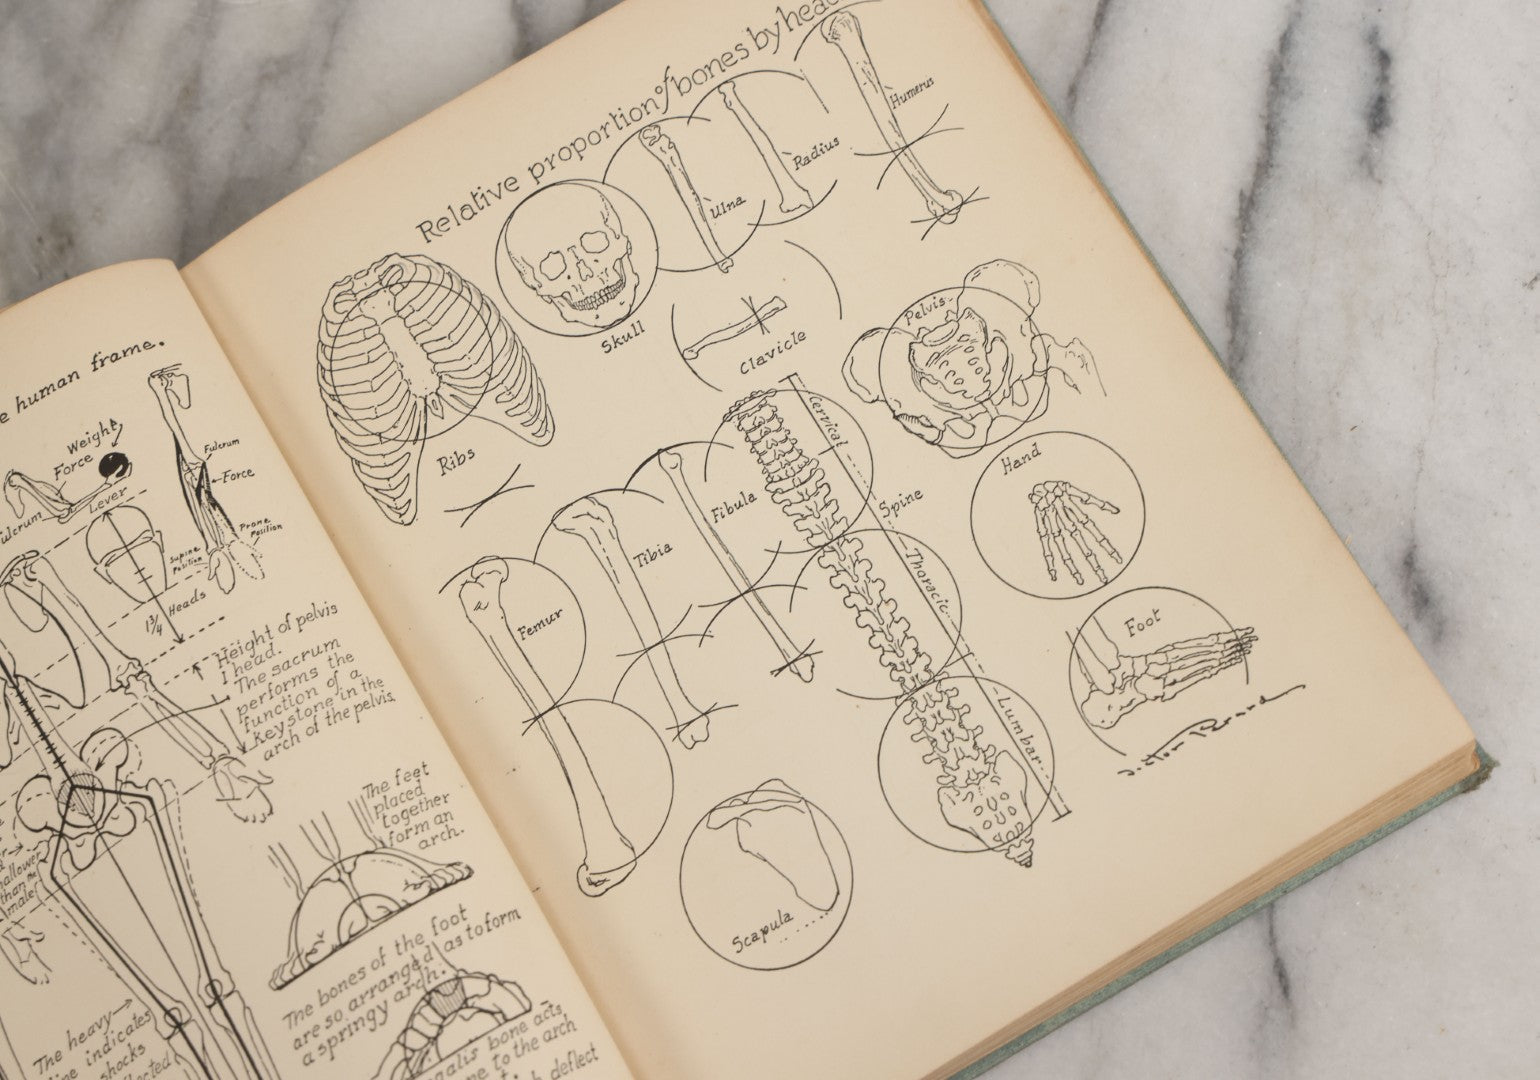 human frame.
Weight
Force
Fulcrum
Lever
Fulcrum
Force
Prone
Position
Supine
Position
1¾ Heads
Height of pelvis
1 head.
The sacrum
performs the
function of a
keystone in the
arch of the pelvis.
than the
male
The feet
placed
together
form an
arch.
The bones of the foot
are so arranged as to form
a springy arch.
The heavy
indicates
shocks
bone acts
to the arch
deflect
Relative proportion of bones by head
Humerus
Radius
Ulna
Skull
Clavicle
Pelvis
Ribs
Cervical
Hand
Spine
Fibula
Tibia
Thoracic
Femur
Foot
Lumbar
Scapula